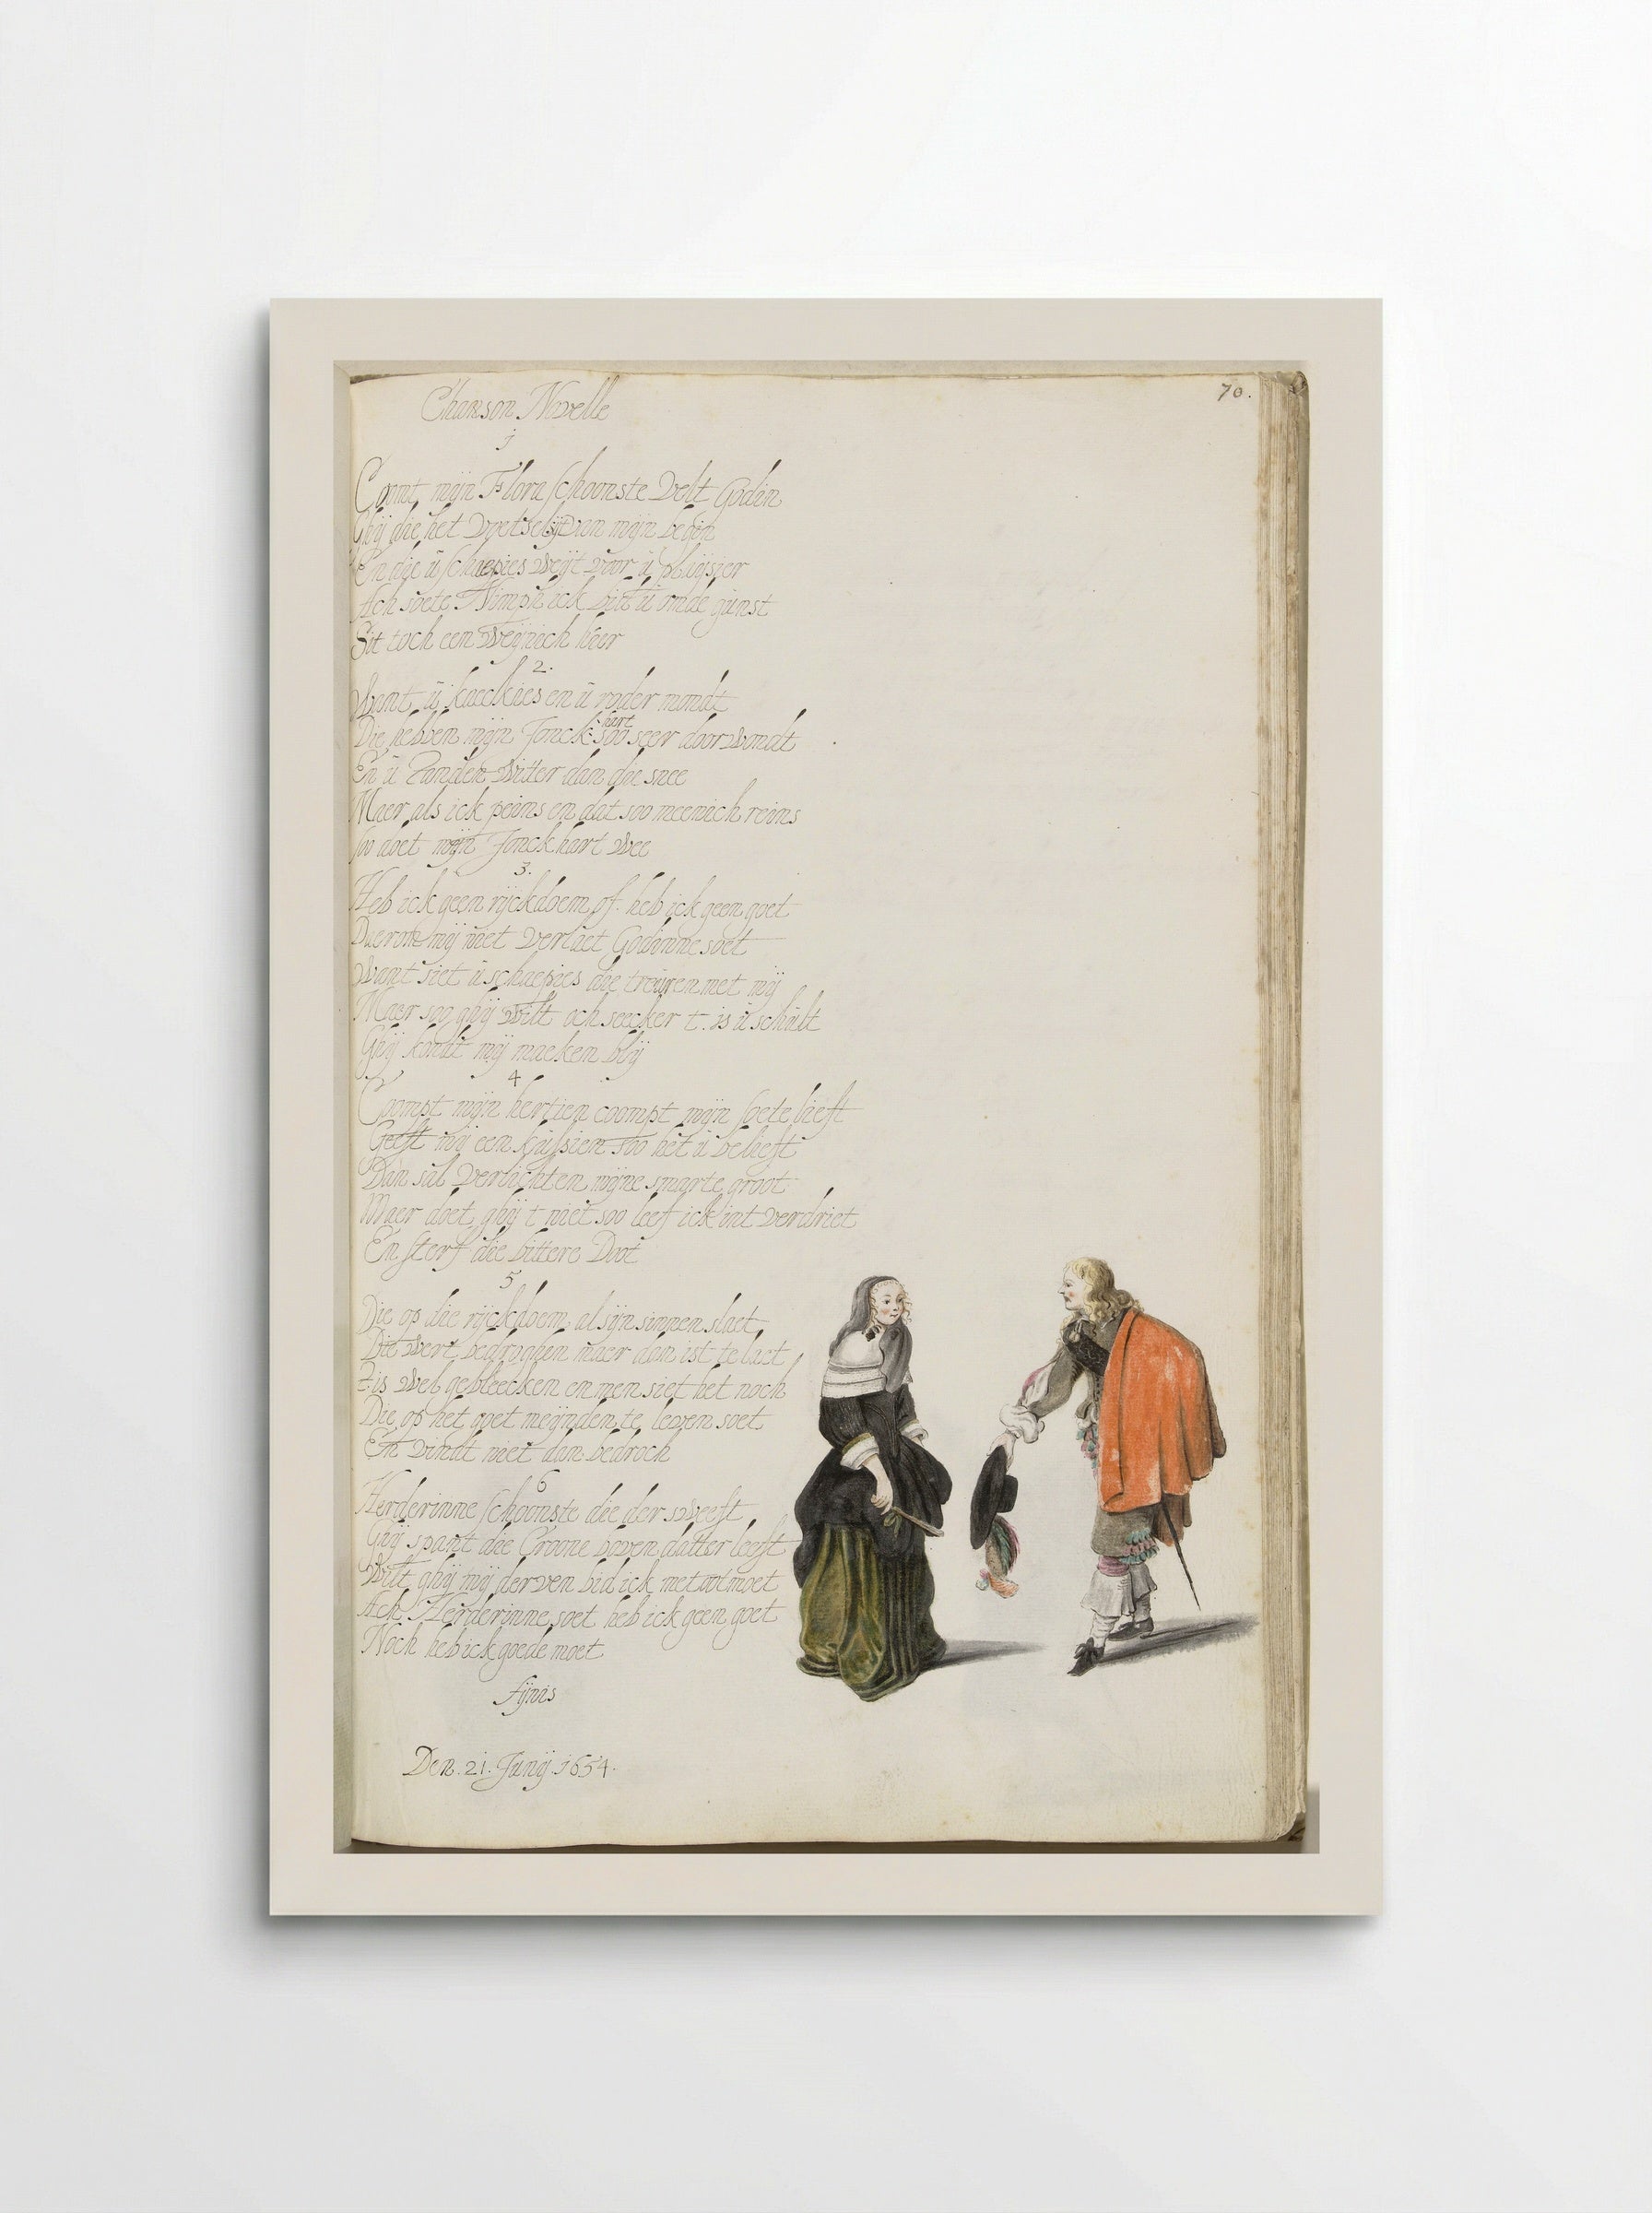 70.
Chanson Novelle
1
Coomt mijn Flora schoonste Velt Godin
Ghij die het Voetsel sijt van mijn begin
En die ú schaepies weijt voor ú pluijsier
Ach soete Nimph ick bidt ú om de gúnst
Sit toch een Weijnich hier
2.
Want ú kaeckies en ú roder mondt
Die hebben mijn Jonck hart soo seer door wondt
En ú Tanden Witter dan die snee
Maer als ick peins en dat soo meenich reins
soo doet mijn Jonck hart wee
3.
Heb ick geen rijckdoem of heb ick geen goet
Daerom mij niet Verlaet Godinne soet
Want siet ú schaepies die treúren met mij
Maer soo ghij wilt och seecker t. is ú schúlt
Ghij kondt mij maeken blij
4
Coompt mijn hertien coompt mijn soete lieft
Geeft mij een kússien soo het ú belieft
Dan sal Verlichten mijne smarte groot
Maer doet ghij t niet soo leef ick int verdriet
En sterf die bittere Doot
5
Die op die rijckdoem al sijn sinnen slaet
Die wert bedroghen maer dan ist te laet
T is wel gebleecken en men siet het noch
Die op het goet meijnden te leven soet
En vindt niet dan bedroch
6
Herderinne schoonste die der Weeft
Ghij spant die Croone boven datter leeft
Wilt ghij mij derven bid ick met ootmoet
Ach Herderinne soet heb ick geen goet
Noch heb ick goede moet
fijnis
Den. 21. Junij. 1654.